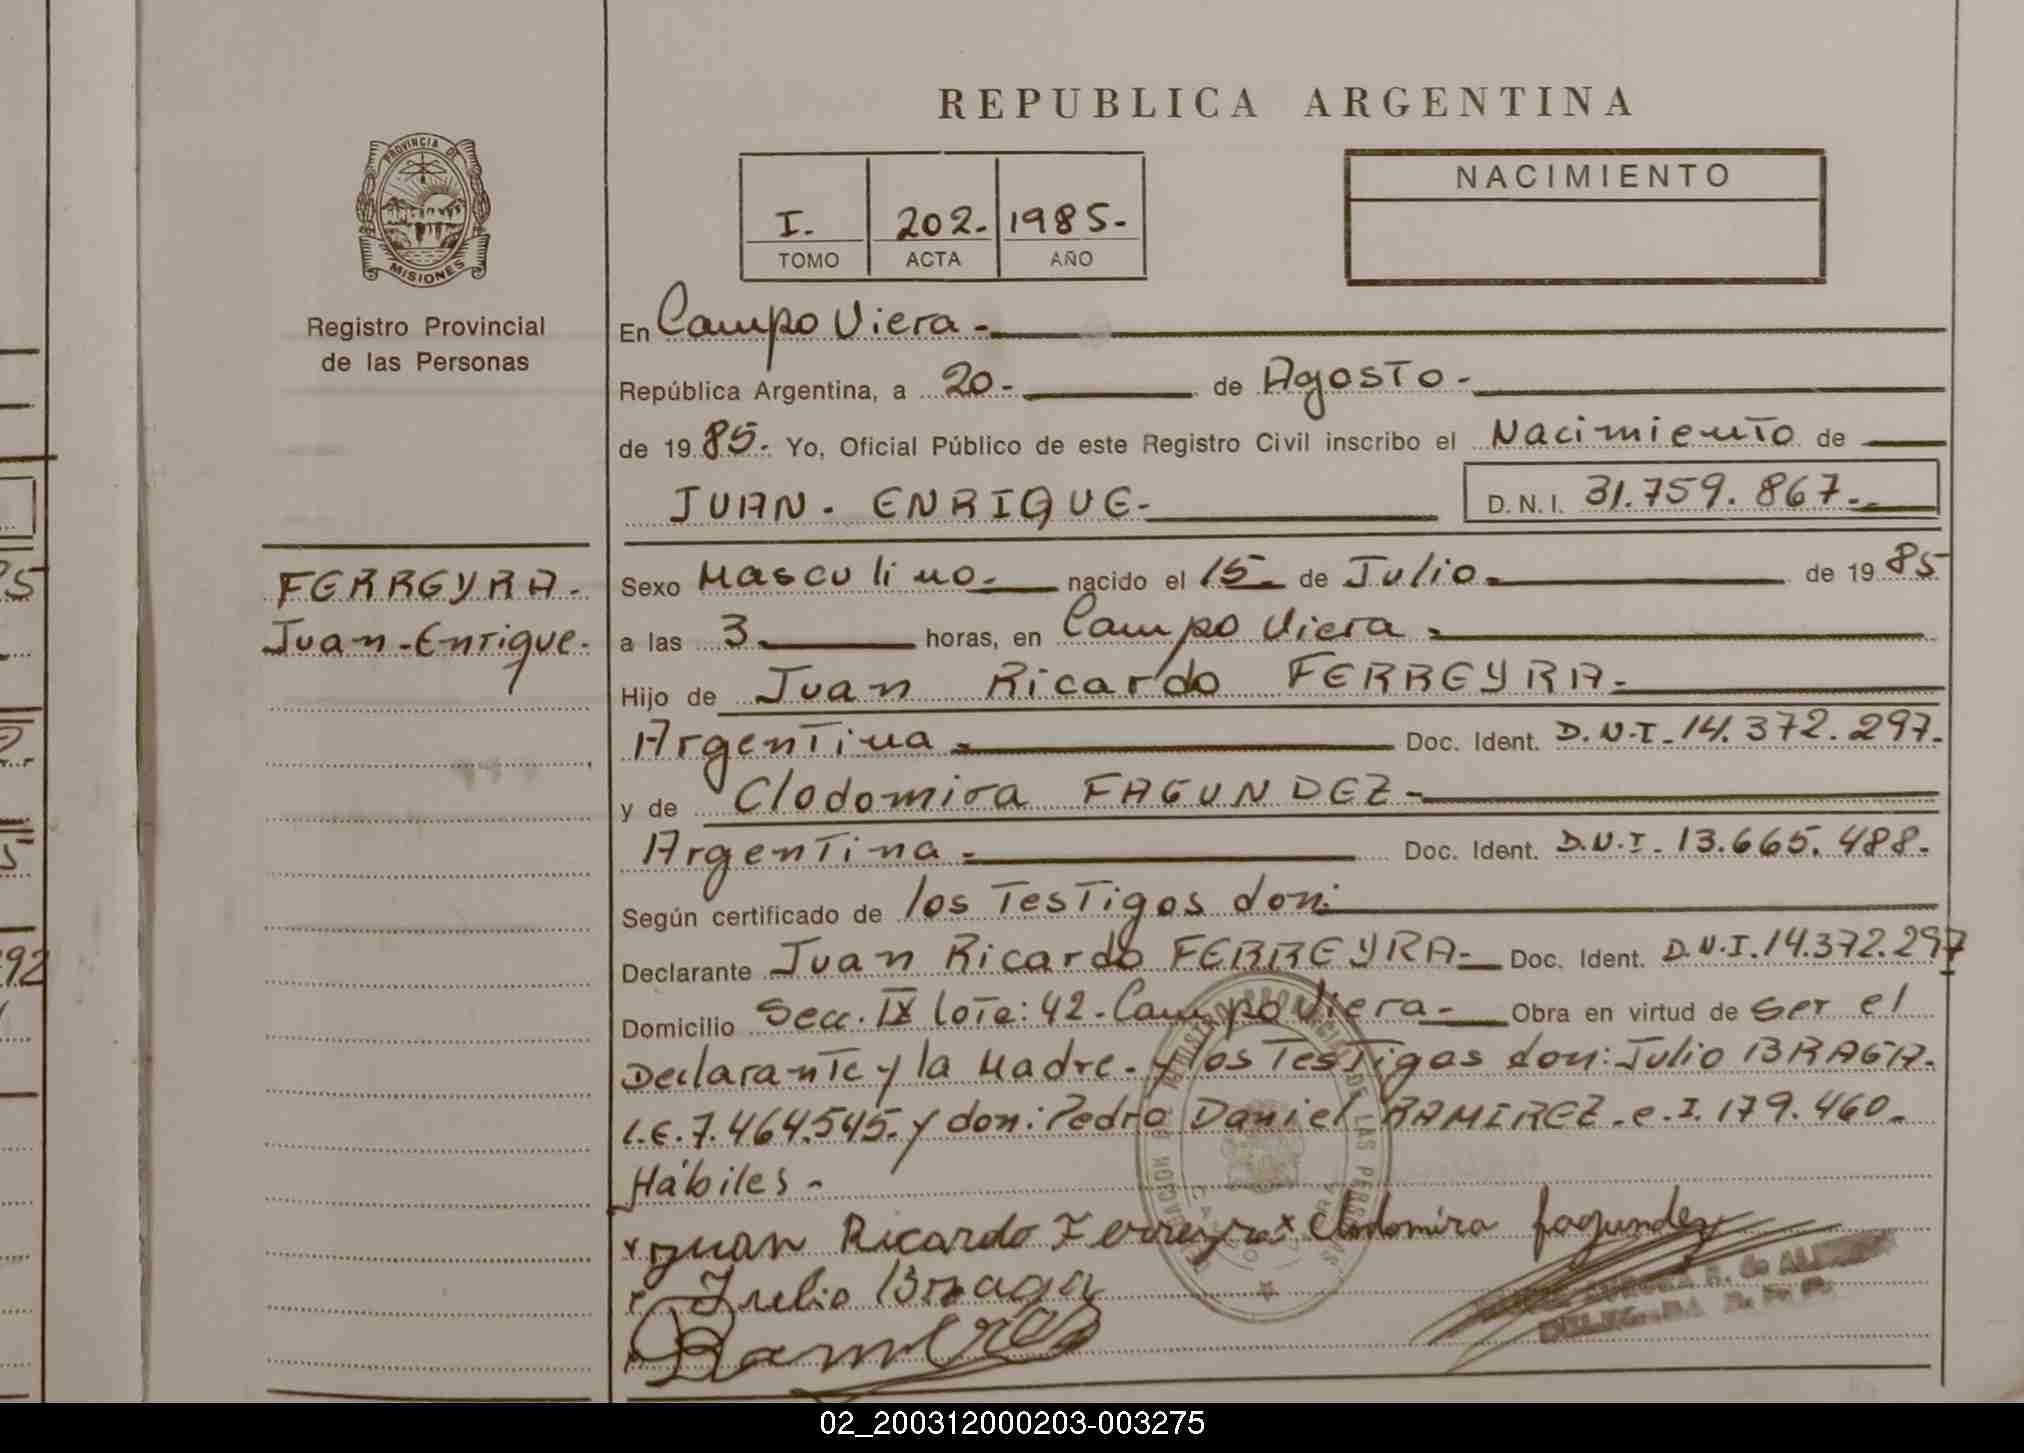 REPUBLICA ARGENTINA
PROVINCIA DE
MISIONES
Registro Provincial
de las Personas
I. 202.- 1985.-
TOMO ACTA AÑO
NACIMIENTO
En Campo Viera.-
República Argentina, a 20.- de Agosto.-
de 19 85.- Yo, Oficial Público de este Registro Civil inscribo el Nacimiento de
JUAN. ENRIQUE.-
D.N.I. 31.759.867.-
FERREYRA.-
Juan-Enrique.-
Sexo Masculino.- nacido el 15.- de Julio.- de 19 85
a las 3.- horas, en Campo Viera.-
Hijo de Juan Ricardo FERREYRA.-
Argentina.- Doc. Ident. D.N.I.14.372.297.-
y de Clodomira FAGUNDEZ.-
Argentina.- Doc. Ident. D.N.I.13.665.488.-
Según certificado de los Testigos don:
Declarante Juan Ricardo FERREYRA.- Doc. Ident. D.N.I.14.372.297
Domicilio Secc. IX lote: 42.-Campo Viera.- Obra en virtud de ser el
Declarante y la Madre.- y los Testigos don: Julio BRAGA.-
L.E.7.464.545.- y don: Pedro Daniel RAMIREZ.-e.I.179.460.-
Hábiles.-
x Juan Ricardo Ferreyra x Clodomira fagundez
x Julio Braga
x Ramirez
02_200312000203-003275